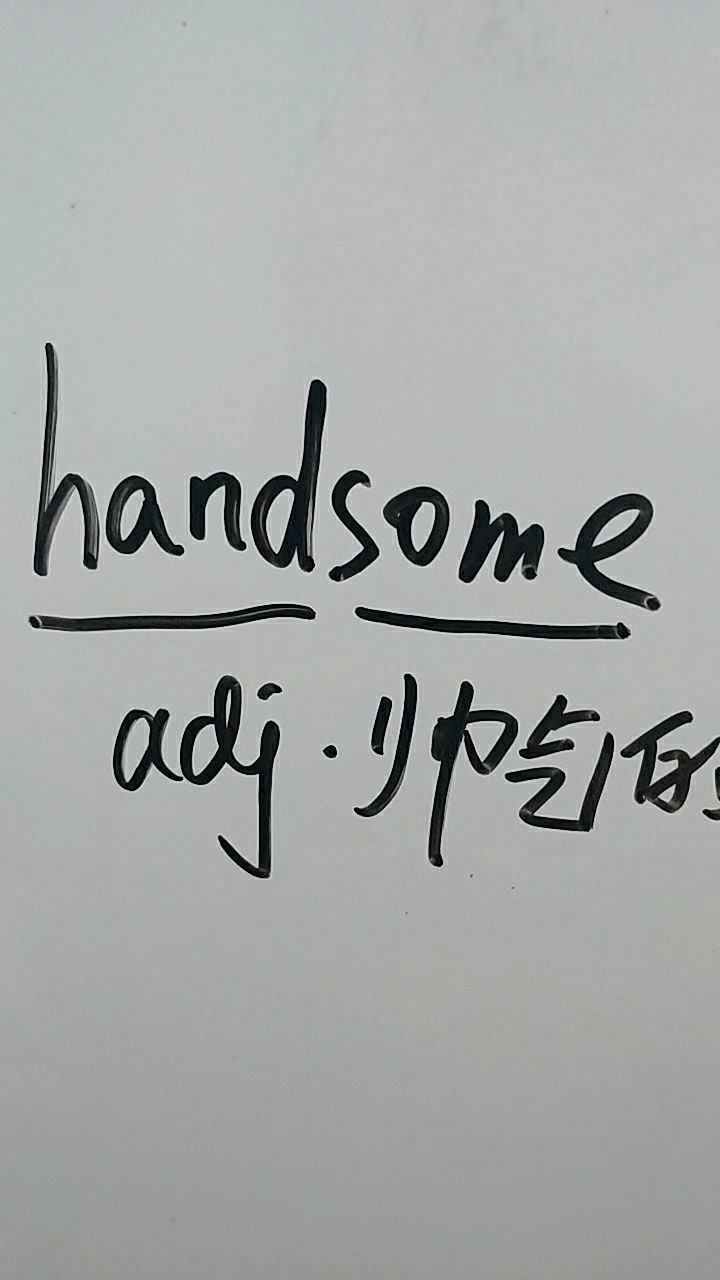 handsome
adj.帅气的